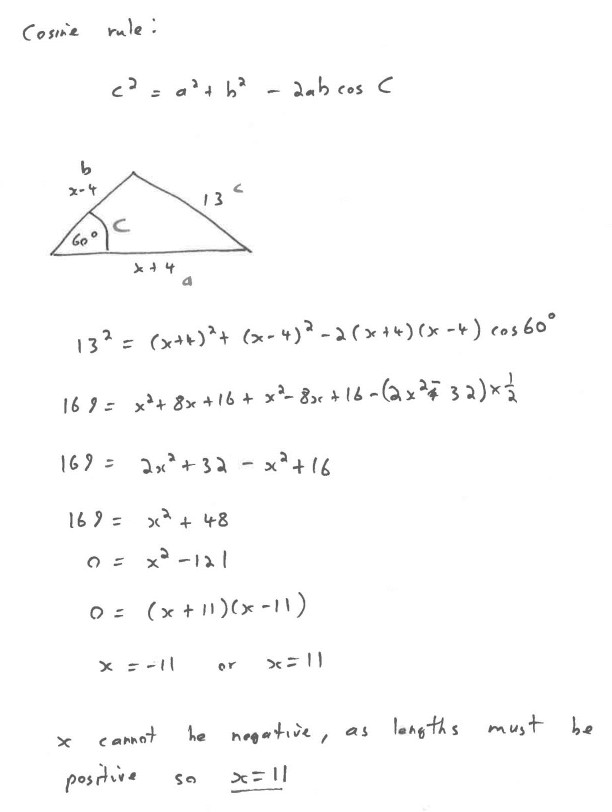 Cosine rule:
c² = a² + b² - 2ab cos C
b
x-4
13 c
60° C
x + 4
a
13² = (x+4)² + (x-4)² - 2(x+4)(x-4) cos 60°
169 = x² + 8x + 16 + x² - 8x + 16 - (2x² - 32) × ½
169 = 2x² + 32 - x² + 16
169 = x² + 48
0 = x² - 121
0 = (x + 11)(x - 11)
x = -11 or x = 11
x cannot be negative, as lengths must be
positive so x = 11